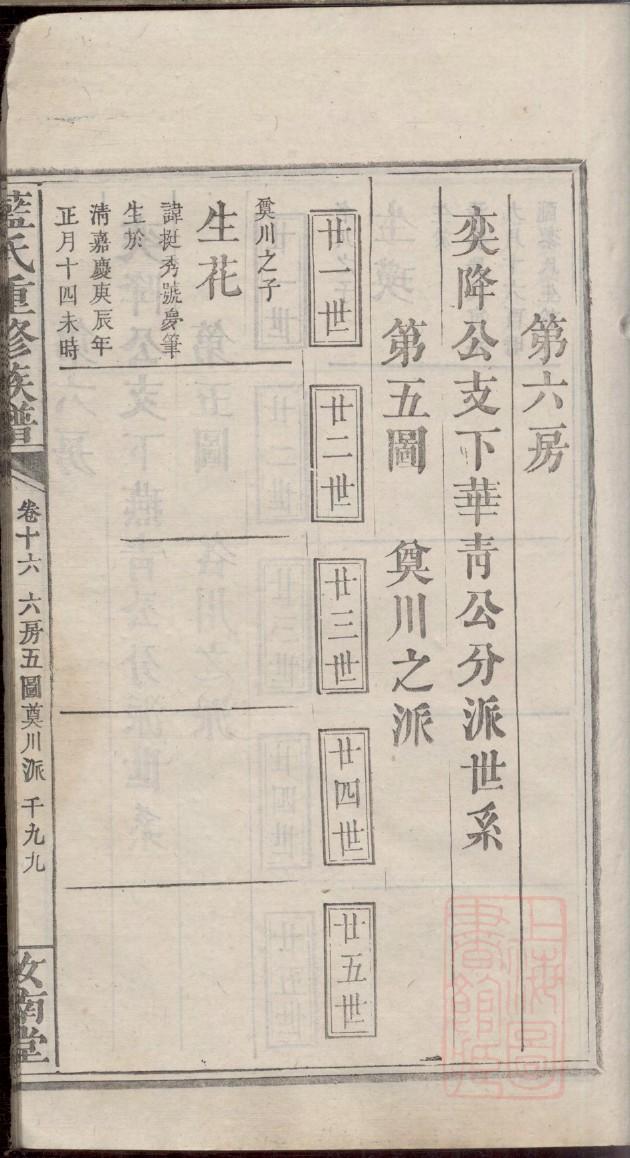 第六房
奕降公支下華青公分派世系
第五圖 奠川之派
廿一世
廿二世
廿三世
廿四世
廿五世
奠川之子
生花
諱挺秀號夢筆
生於
清嘉慶庚辰年
正月十四未時
藍氏重修族譜
卷十六 六房五圖奠川派 千九九
汝南堂
上海圖書館藏